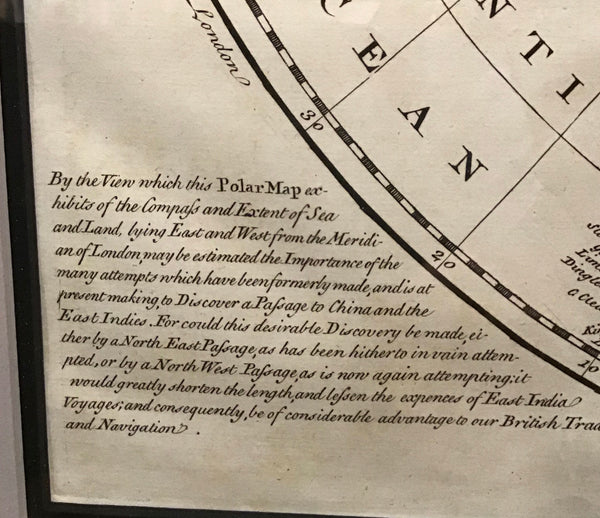 London
NTI
CEAN
30
20
10
By the View which this Polar Map ex-
hibits of the Compaſs and Extent of Sea
and Land, lying East and West from the Meridi-
an of London, may be estimated the Importance of the
many attempts which have been formerly made, and is at
present making, to Discover a Paſsage to China and the
East Indies. For could this desirable Discovery be made, ei-
ther by a North East Paſsage, as has been hitherto in vain attem-
pted, or by a North West Paſsage, as is now again attempting; it
would greatly shorten the length, and leſsen the expences of East India
Voyages; and consequently, be of considerable advantage to our British Trad
and Navigation.